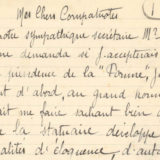 Mes Chers Compatriotes
notre sympathique secrétaire Mr
me demanda si j'accepterais
présidence de la "Pomme", j'en
d'abord, au grand honneur
me faire sachant bien
la statuaire développe
qualités d'éloquence, d'autant